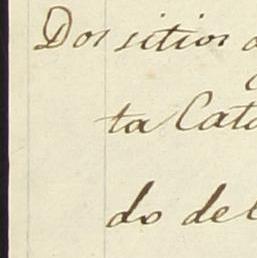 Dos sitios d
ta Cata
do del